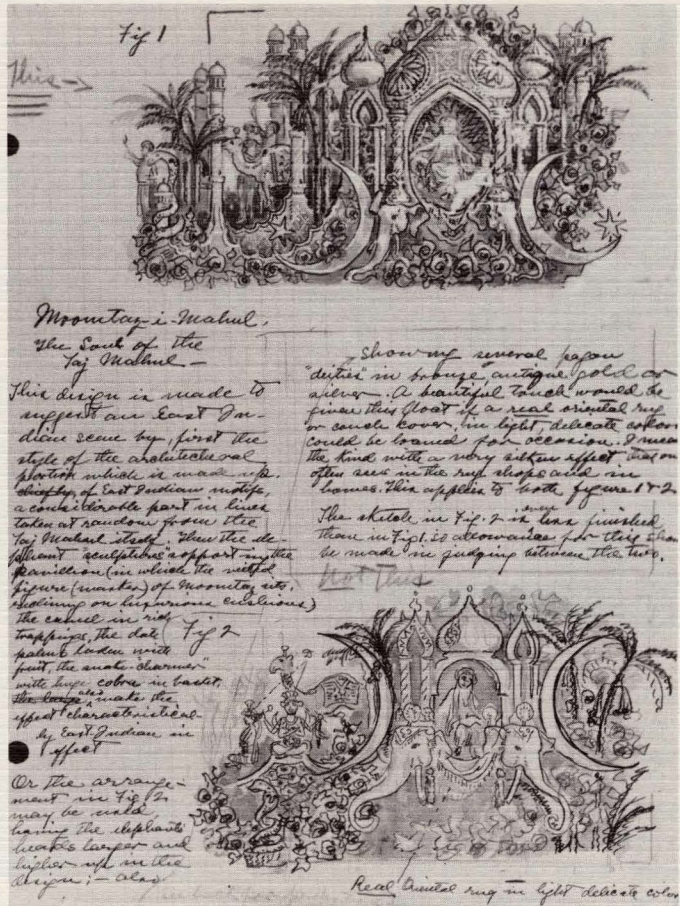 Fig 1
This →
Moomtaz-i-Mahul.
The Soul of the
Taj Mahul –
This design is made to
suggest an East In-
dian scene by, first the
style of the architectural
portion which is made up
chiefly, of East Indian motifs,
a considerable part in lines
taken at random from the
Taj Mahul itself. Then the ele-
phant "sculptures" support-ing the
pavillion (in which the veiled
figure (masker) of Moomtaz sits,
reclining on luxurious cushions)
the camel in rich
trappings, the date
palms laden with
fruit, the snake-charmer
with huge cobra in basket,
also make the
effect characteristical-
ly East Indian in
effect
Or the arrange-
ment in Fig 2
may be used,
having the elephants
heads larger and
higher up in the
design; – also
showing several pagan
"deities" in bronze, antique gold or
silver. A beautiful touch would be
given this float if a real oriental rug
or couch cover, in light, delicate colors
could be loaned for occasion. I mean
the kind with a very silken effect that one
often sees in the rug shops and in
homes. This applies to both figure 1 & 2
The sketch in Fig. 2 is even less finished
than in Fig 1. so allowances for this
be made in judging between the two.
Not This
Fig 2
Real Oriental rug in light delicate color